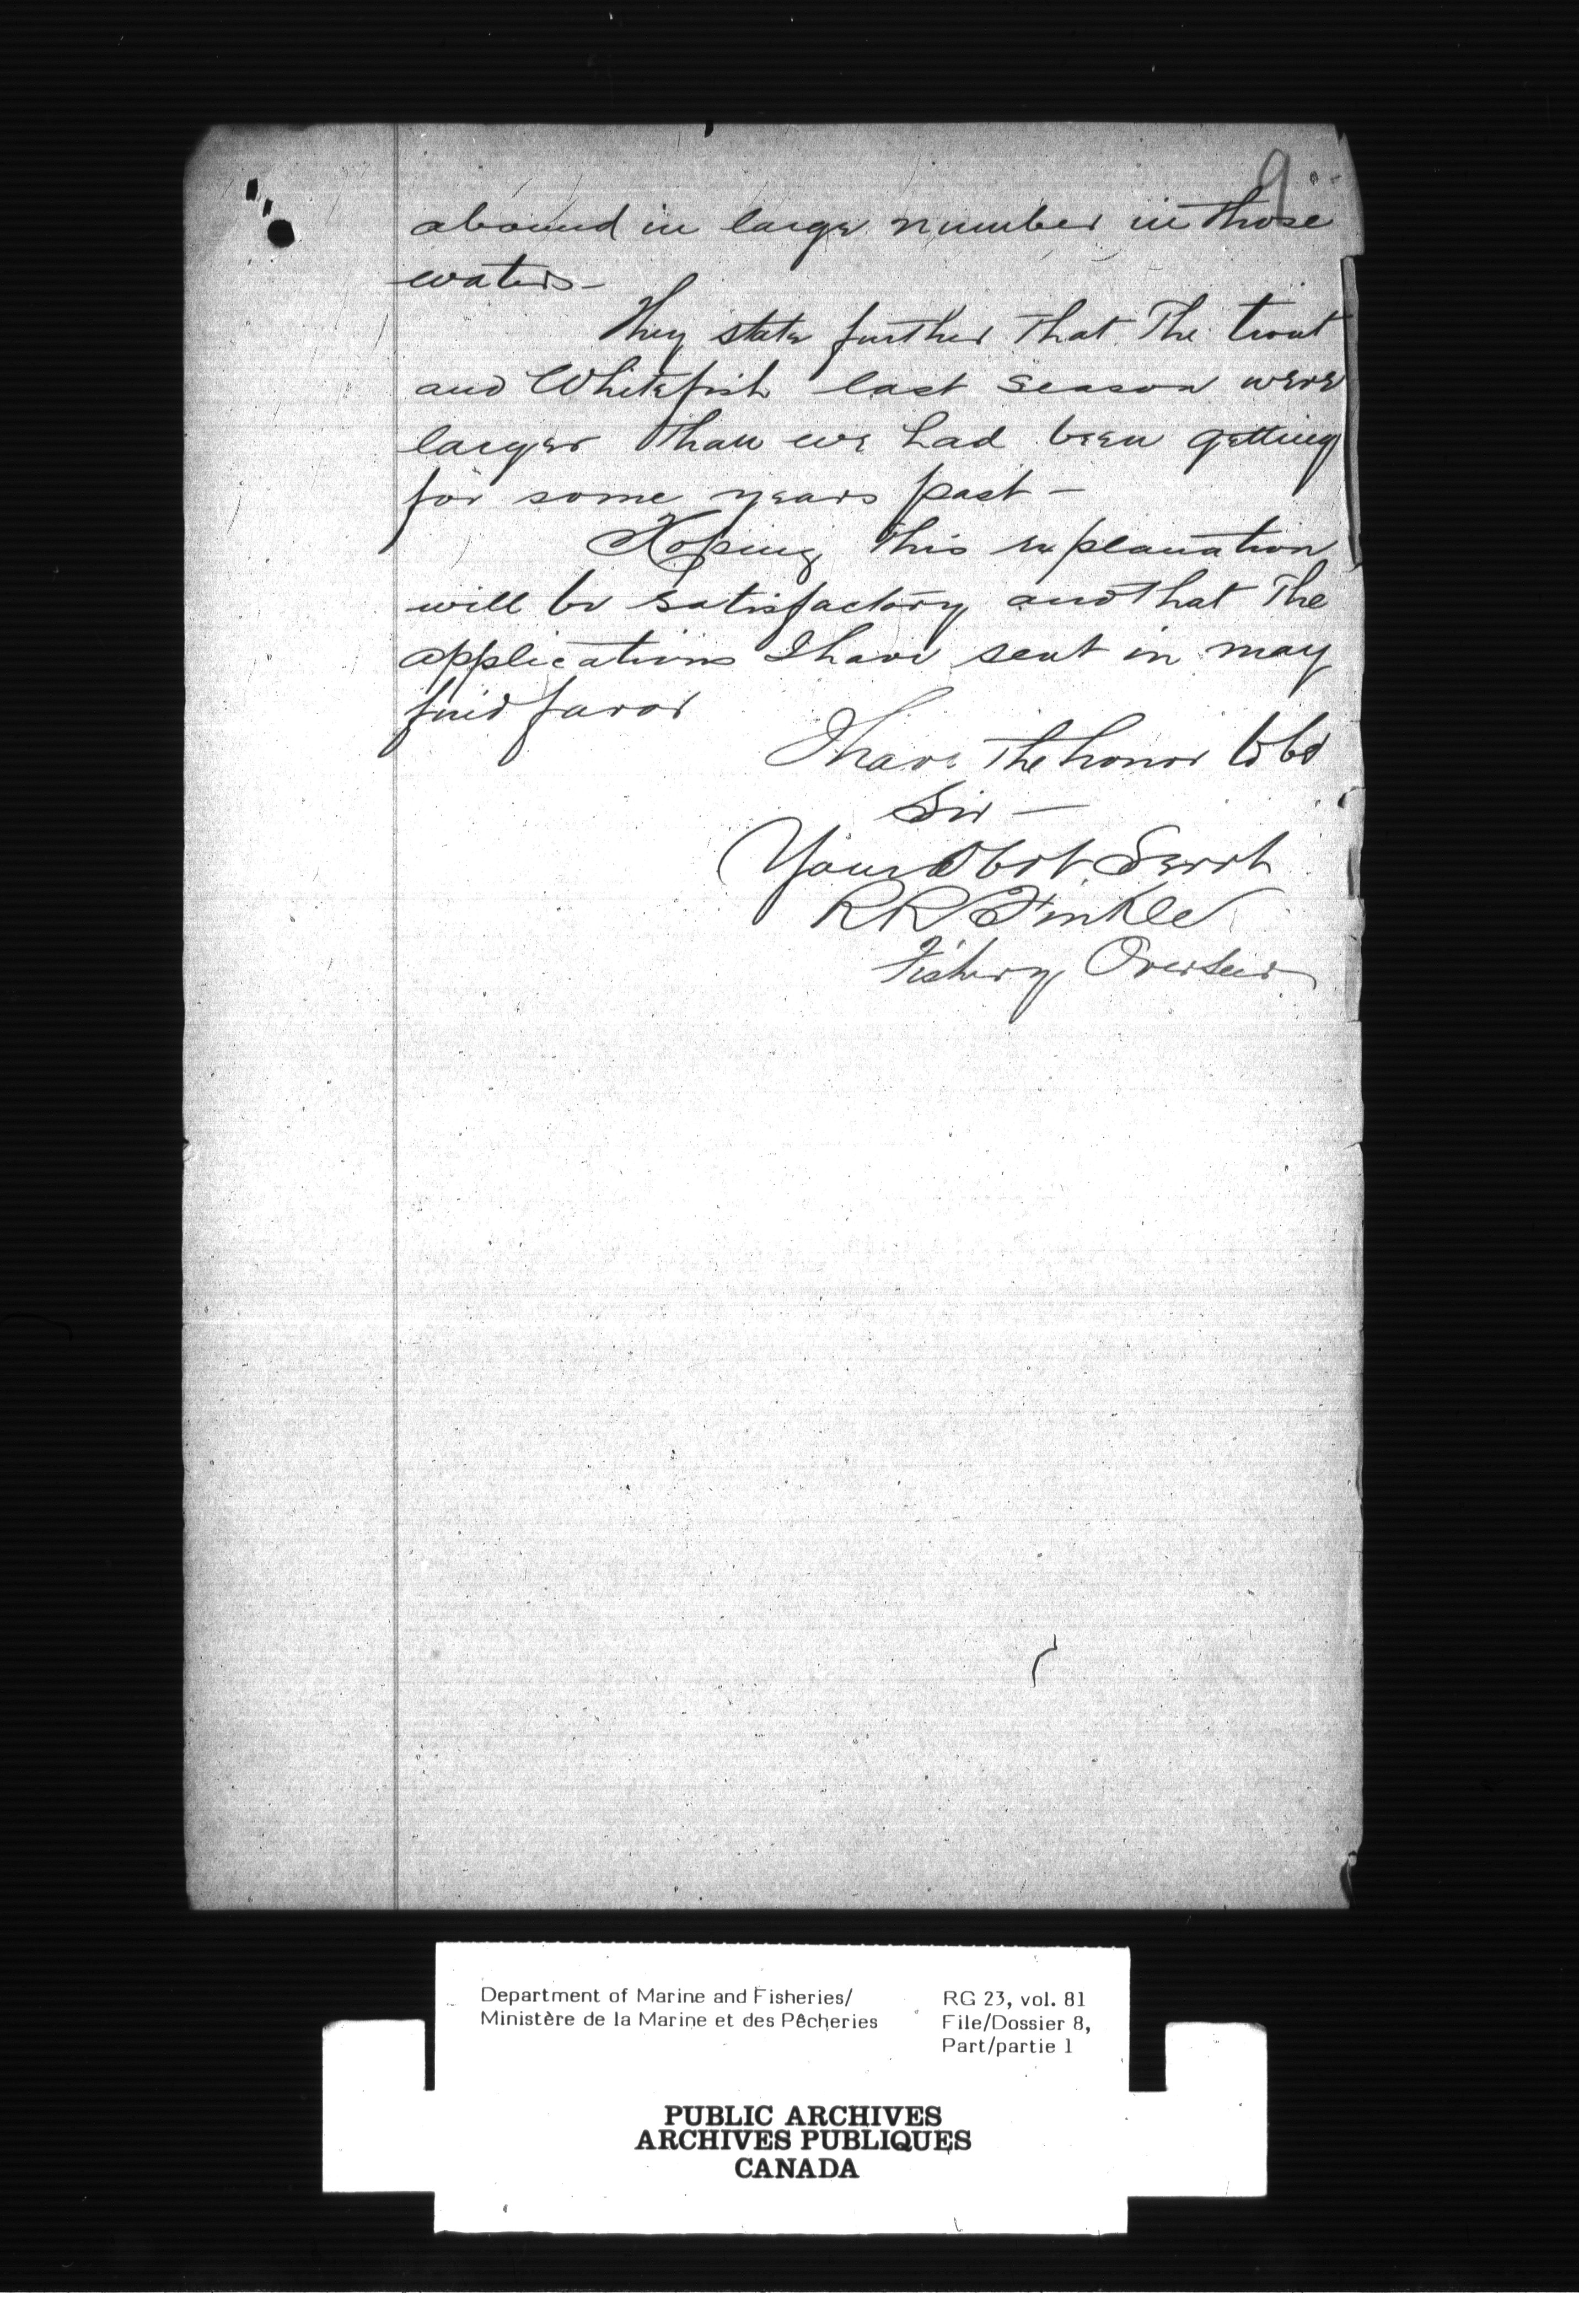 9
abound in large number in those
waters -
They state further that The trout
and Whitefish last season were
larger than we had been getting
for some years past -
Hoping this explanation
will be satisfactory and that The
applications I have sent in may
find favor
I have The honor to be
Sir -
Your Obdt Servt
RR Finkle
Fishery Overseer
Department of Marine and Fisheries/
Ministère de la Marine et des Pêcheries
RG 23, vol. 81
File/Dossier 8,
Part/partie 1
PUBLIC ARCHIVES
ARCHIVES PUBLIQUES
CANADA